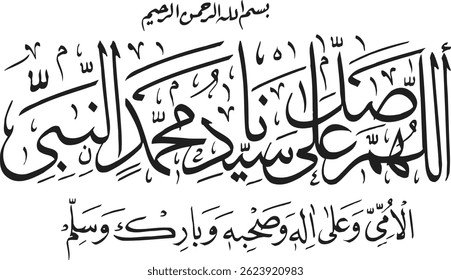 بسم الله الرحمن الرحيم
أللهم صل على سيدنا محمد النبي
الامي وعلى اله وصحبه وبارك وسلم
shutterstock.com · 2623920983